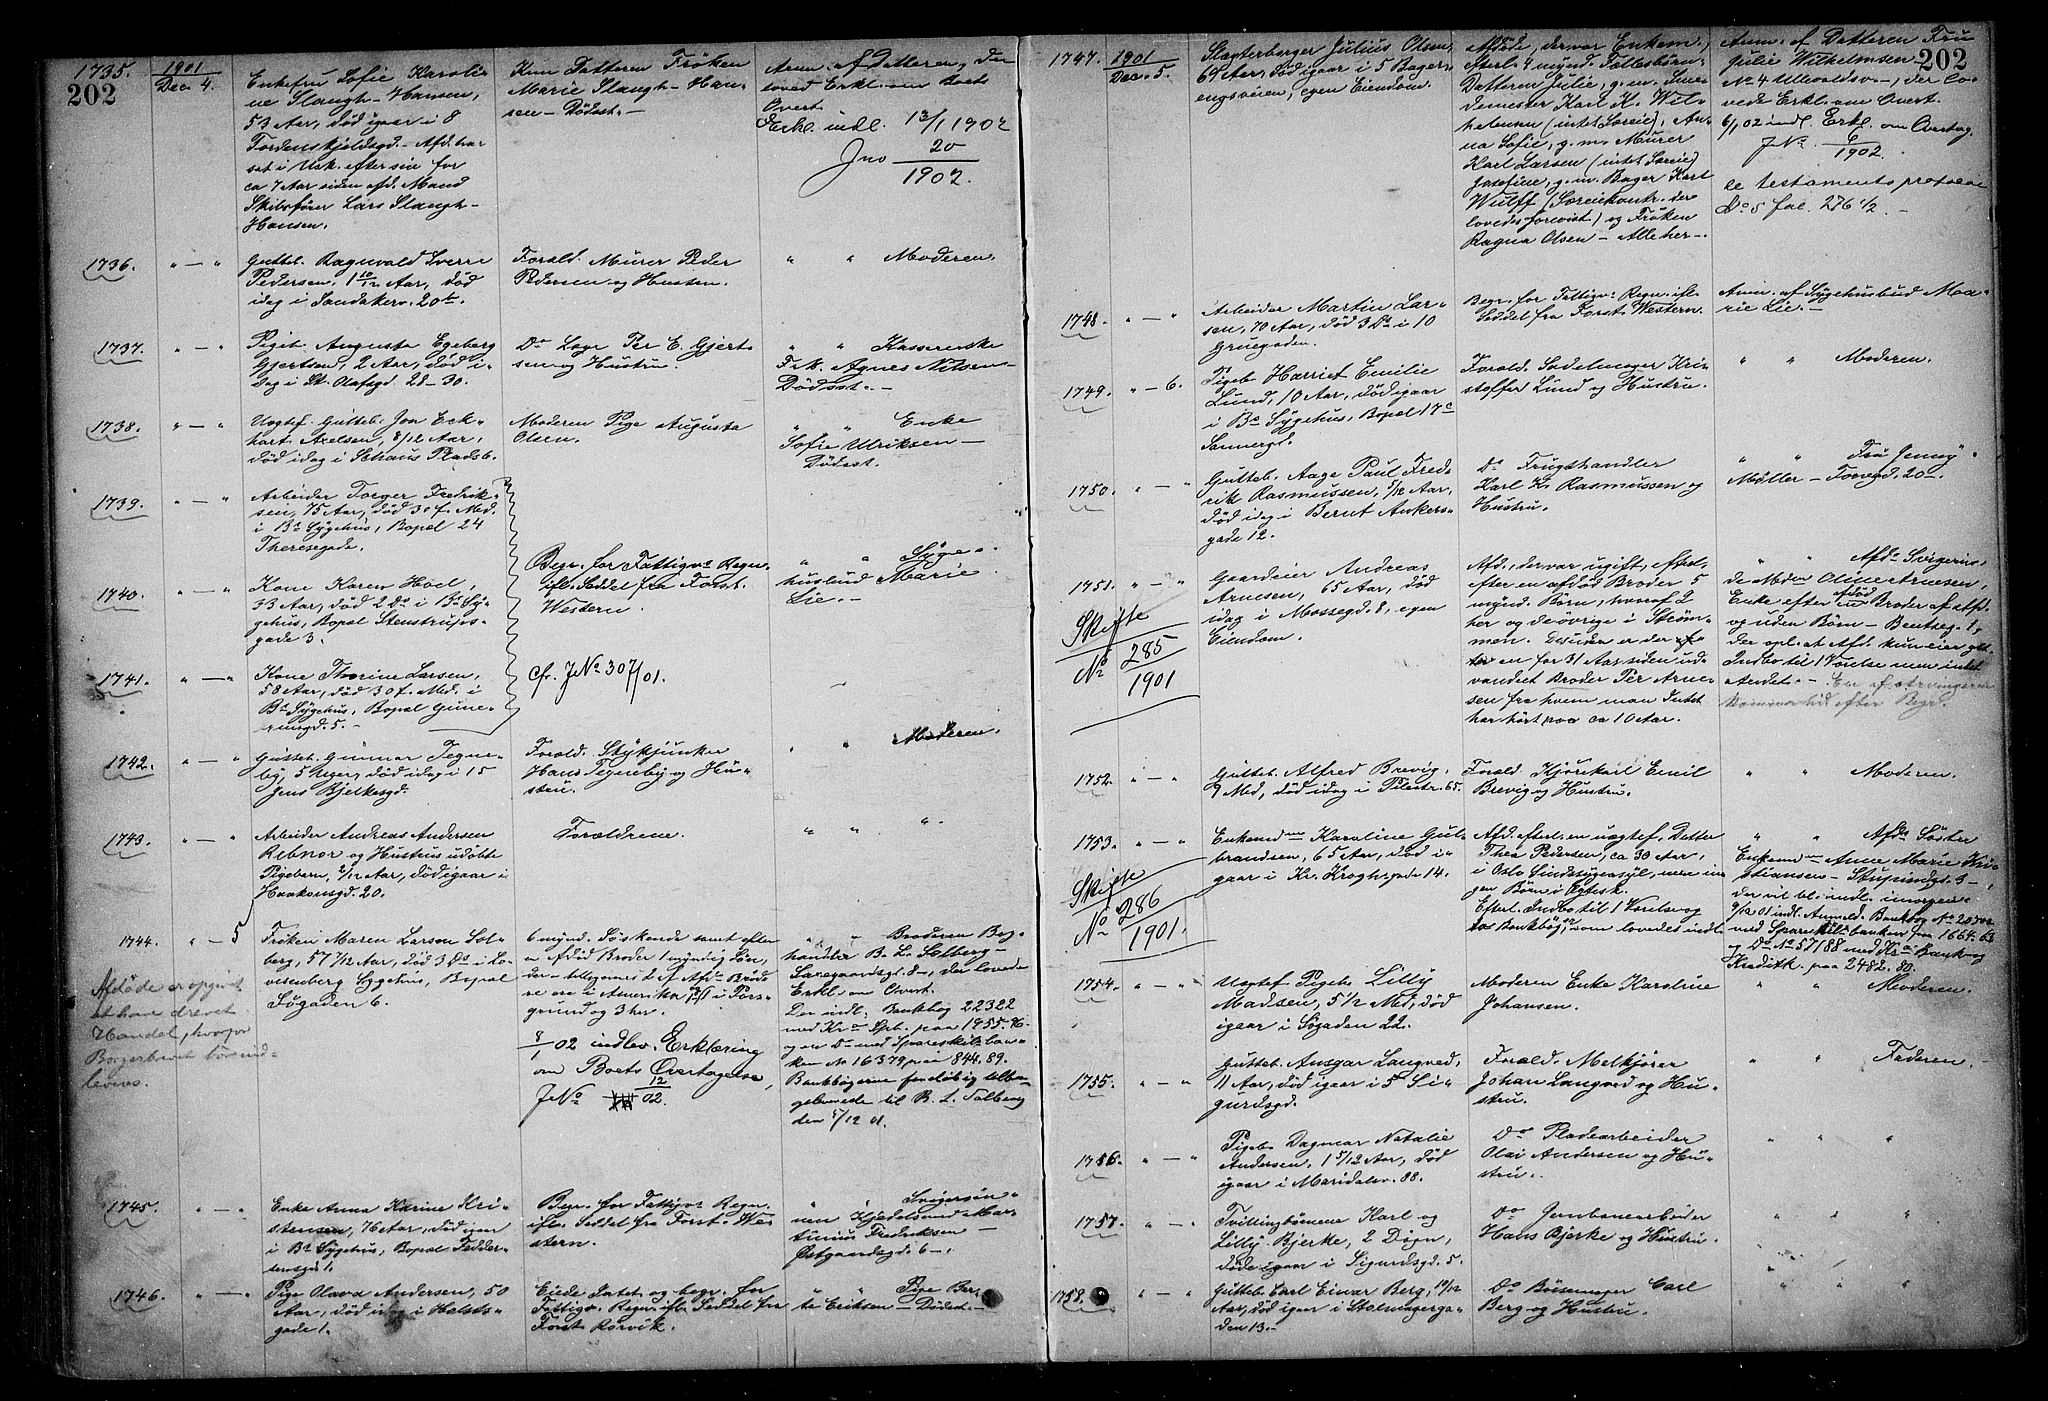 202
1735.
1901
Dec. 4.
Enkefru Sofie Karoli-
ne Slaugh-Hansen,
53 Aar, død igaar i 8
Tordenskjoldsgd. - Afd. har
sat i Usk. efter sin for
ca 7 Aar siden afd. Mand
Skibsfører Lars Slaugh-
Hansen.
Kun Datteren Frøken
Marie Slaugh-Han-
sen - Dødsst. -
Anm. af Datteren, der
loved Erkl. om Boets
Overt.
Erkl. indl. 13/1 1902
Jno 20
1902.
1736.
" — "
Gutteb. Ragnvald Sverre
Pedersen, 1 10/12 Aar, død
idag i Sandakerv. 20 b.
Forald. Murer Peder
Pedersen og Hustru.
" " Moderen.
1737.
" — "
Pigeb. Augusta Egeberg
Gjertsen, 2 Aar, død i-
dag i St. Olafsgd. 28-30.
Do Læge Per E. Gjert-
sen og Hustru.
" " Kassererske
Frk. Agnes Nilsen -
Dødsst. -
1738.
" — "
Uægtef. Gutteb. Jon Eck-
hart Axelsen, 8/12 Aar,
død idag i Schaus Plads 6.
Moderen Pige Augusta
Olsen.
" " Enke
Sofie Ulriksen -
Dødsst.
1739.
" — "
Arbeider Torger Fredrik-
sen, 75 Aar, død 30 f. Md.
i Bs Sygehus, Bopæl 24
Theresegade.
1740.
" — "
Kone Karen Hoel,
33 Aar, død 2 Ds i Bs Sy-
gehus, Bopæl Stenstrups-
gade 3.
Begr. for Fattigv. Regn.
ifl. Seddel fra Forst.
Western.
" " Syge-
husbud Marie
Lie. -
1741.
" — "
Kone Thorine Larsen,
58 Aar, død 30 f. Md. i
Bs Sygehus, Bopæl Gune-
riusgd. 5. -
Cfr. J No 307/01.
1742.
" — "
Gutteb. Gunnar Tegne-
by, 5 Uger, død idag i 15
Jens Bjelkesgd.
Forald. Stykjunker
Hans Tegneby og Hu-
stru.
" " Moderen.
1743.
" — "
Arbeider Andreas Andersen
Rebnor og Hustrus udøbte
Pigebarn, 2/12 Aar, død igaar i
Haakonsgd. 20.
Forældrene.
" " "
1744.
" — 5
Frøken Maren Larsen Sol-
berg, 57 7/12 Aar, død 3 Ds i Lo-
visenberg Sygehus, Bopæl
Søgaden 6.
6 mynd. Søskende samt efter
en afdød Broder 1 myndig Søn,
de - tilligemed 2 af Afds Brødre
ere i Amerika, 1 i Pors-
grund og 3 her.
8/1 02 indlev. Erklæring
om Boets Overtagelse,
J No 12
02.
" " Broderen Bog-
handler B. L. Solberg -
Saxegaardsgd. 8 -, der lovede
Erkl. om Overt.
Der indl. Bankbog 22322
med Kra Spb. paa 1955.96
og en Do med Spareskillban-
ken No 16379 paa 844.89.
Bankbøgerne foreløbig tilba-
geleverede til B. L. Solberg
den 5/12 01.
Afdøde er opgivet
at have drevet
Handel, hvorfor
Borgerbrevet bør ind-
leveres.
1745.
" — "
Enke Anna Karine Kri-
stensen, 76 Aar, død igaar
i Bs Sygehus, Bopæl Fedder-
sensgd. 1.
Begr. for Fattigv. Regn.
ifl. Seddel fra Forst. We-
stern.
" " Svigersøn-
nen Kjedelsmed Mar-
tinius Fredriksen
Østgaardsgd. 6 -.
1746.
" — "
Pige Olava Andersen, 50
Aar, død idag i Holsts-
gade 1.
Eiede Intet og begr. for
Fattigv. Regn. ifl. Seddel fra
Forst. Rørvik.
" " Pige Ber-
te Eriksen - Dødsst. -
202
1747.
1901
Dec. 5.
Slagterberger Julius Olsen,
69 Aar, død igaar i 5 Bager-
engsveien, egen Eiendom.
Afdøde, der var Enkem.,
efterl. 4 mynd. Fællesbørn:
Datteren Julie, g. m. Sme-
demester Karl K. Wil-
helmsen (intet Særeie), An-
na Sofie, g. m. Murer
Karl Larsen (intet Særeie),
Josefine, g. m. Bager Karl
Wulff (Særeiekontr. der
lovedes forevist) og Frøken
Ragna Olsen - Alle her -.
Anm. af Datteren Fru
Julie Wilhelmsen
No 4 Ullevoldsv. -, der lo-
vede Erkl. om Overt.
6/1 02 indl. Erkl. om Overtag.
J No 6
1902.
Se testamentsprotocol
No 5 fol. 276 1/2. -
1748.
" — "
Arbeider Martin Lar-
sen, 70 Aar, død 3 Ds i 10
Gruegaden.
Begr. for Fattigv. Regn. ifl.
Seddel fra Forst. Western.
Anm. af Sygehusbud Ma-
rie Lie. -
1749.
" — 6.
Pigeb. Harriet Emilie
Lund, 10 Aar, død igaar
i Bs Sygehus, Bopæl 17 c
Sannergd.
Forald. Sadelmager Kri-
stoffer Lund og Hustru.
" " Moderen.
1750.
" — "
Gutteb. Aage Paul Fred-
rik Rasmussen, 5/12 Aar,
død idag i Bernt Ankers-
gade 12.
Do Frugthandler
Karl Kr. Rasmussen og
Hustru.
" " Fru Jenny
Møller - Torvgd. 20 -.
1751.
" — "
Gaardeier Andreas
Arnesen, 65 Aar, død
idag i Mossegd. 8, egen
Eiendom.
Skifte
No 285
1901
Afd., der var ugift, efterl.
efter en afdød Broder 5
mynd. Børn, hvoraf 2
her og de øvrige i Strøm-
men. Desuden er der ef-
ter en for 31 Aar siden ud-
vandret Broder Per Arne-
sen fra hvem man Intet
har hørt paa ca 10 Aar.
" " Afds Svigerin-
de Madm Oline Arnesen,
Enke efter en afdød Broder af Afd.
og uden Børn - Bentseg. 1,
der opl. at Afd. kun eier gl.
Indbo til 1 Værelse men intet
andet. - En af arvingerne
kommer hid efter Begr.
1752.
" — "
Gutteb. Alfred Brevig,
9 Md., død idag i Pilestr. 65.
Forald. Kjørekarl Emil
Brevig og Hustru.
" " Moderen.
1753.
" — "
Enkemdm Karoline Gul-
brandsen, 65 Aar, død i-
gaar i Kr. Kroghsgade 14.
Skifte
No 286
1901.
Afd. efterl. en uægtef. Datter
Thea Pedersen, ca 30 Aar,
i Oslo Sindssygeasyl, men in-
gen Børn i Ægtesk.
Efterl. Indbo til 1 Værelse og
Bankbog, som lovedes indl.
" " Afds Søster
Enkemdm Anne Marie Kri-
stiansen - Stupindgd. 3 -,
der vil bl. indl. imorgen.
9/12 01 indl. Anmeld. Bankbog No 20702
med Sparesk. banken paa 1664.63
og Do No 57188 med Kra Bank og
Kreditk. paa 2482.80.
1754.
" — "
Uægtef. Pigeb. Lilly
Madsen, 5 1/2 Md., død
igaar i Søgaden 22.
Moderen Enke Karoline
Johansen.
" " Moderen.
1755.
" — "
Gutteb. Ansgar Langved,
11 Aar, død igaar i 5 Si-
gurdsgd.
Forald. Melkjører
Johan Langved og Hu-
stru.
" " Faderen.
1756.
" — "
Pigeb. Dagmar Natalie
Andersen, 1 5/12 Aar, død
igaar i Maridalsv. 88.
Do Pladearbeider
Olai Andersen og Hu-
stru.
" " "
1757.
" — "
Tvillingbørnene Karl og
Lilly Bjerke, 2 Døgn,
døde igaar i Sigurdsgd. 5.
Do Jernbanearbeider
Hans Bjerke og Hustru.
" " "
1758.
" — "
Gutteb. Carl Einar Berg, 10/12
Aar, død igaar i Stolmagerga-
den 13. -
Do Børsemager Carl
Berg og Hustru.
" " "